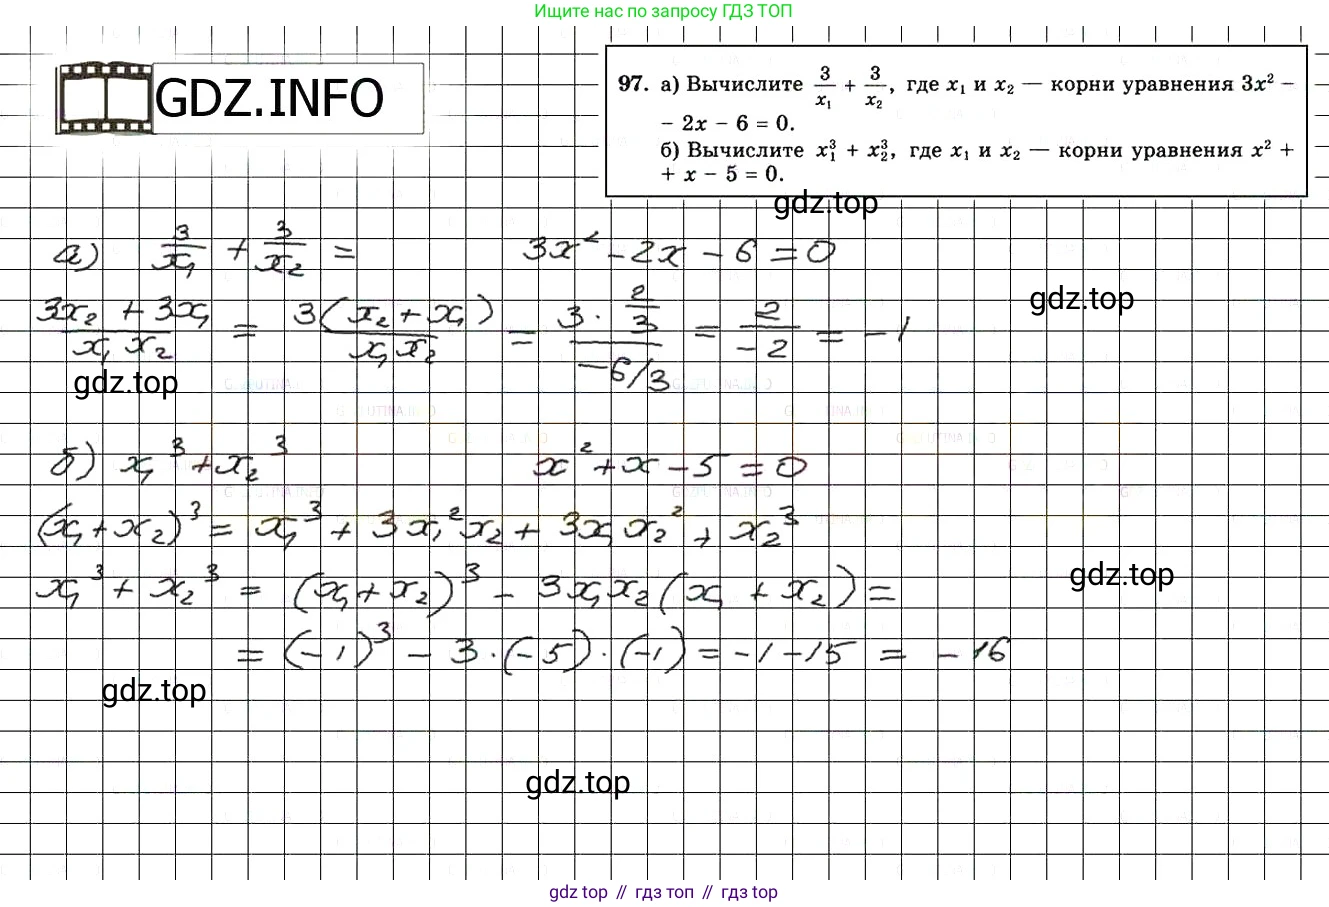 Ищите нас по запросу ГДЗ ТОП
GDZ.INFO
97. а) Вычислите 3/x₁ + 3/x₂, где x₁ и x₂ — корни уравнения 3x² –
– 2x – 6 = 0.
б) Вычислите x₁³ + x₂³, где x₁ и x₂ — корни уравнения x² +
+ x – 5 = 0.
gdz.top
а) 3/x₁ + 3/x₂ = 3x² – 2x – 6 = 0
(3x₂ + 3x₁)/(x₁ x₂) = 3(x₂ + x₁)/(x₁ x₂) = (3 · 2/3)/(–6/3) = 2/–2 = –1
gdz.top
gdz.top
б) x₁³ + x₂³ x² + x – 5 = 0
(x₁ + x₂)³ = x₁³ + 3x₁²x₂ + 3x₁x₂² + x₂³
x₁³ + x₂³ = (x₁ + x₂)³ – 3x₁x₂(x₁ + x₂) =
gdz.top
= (–1)³ – 3 · (–5) · (–1) = –1 – 15 = –16
gdz.top
gdz.top
gdz top // гдз топ // гдз top